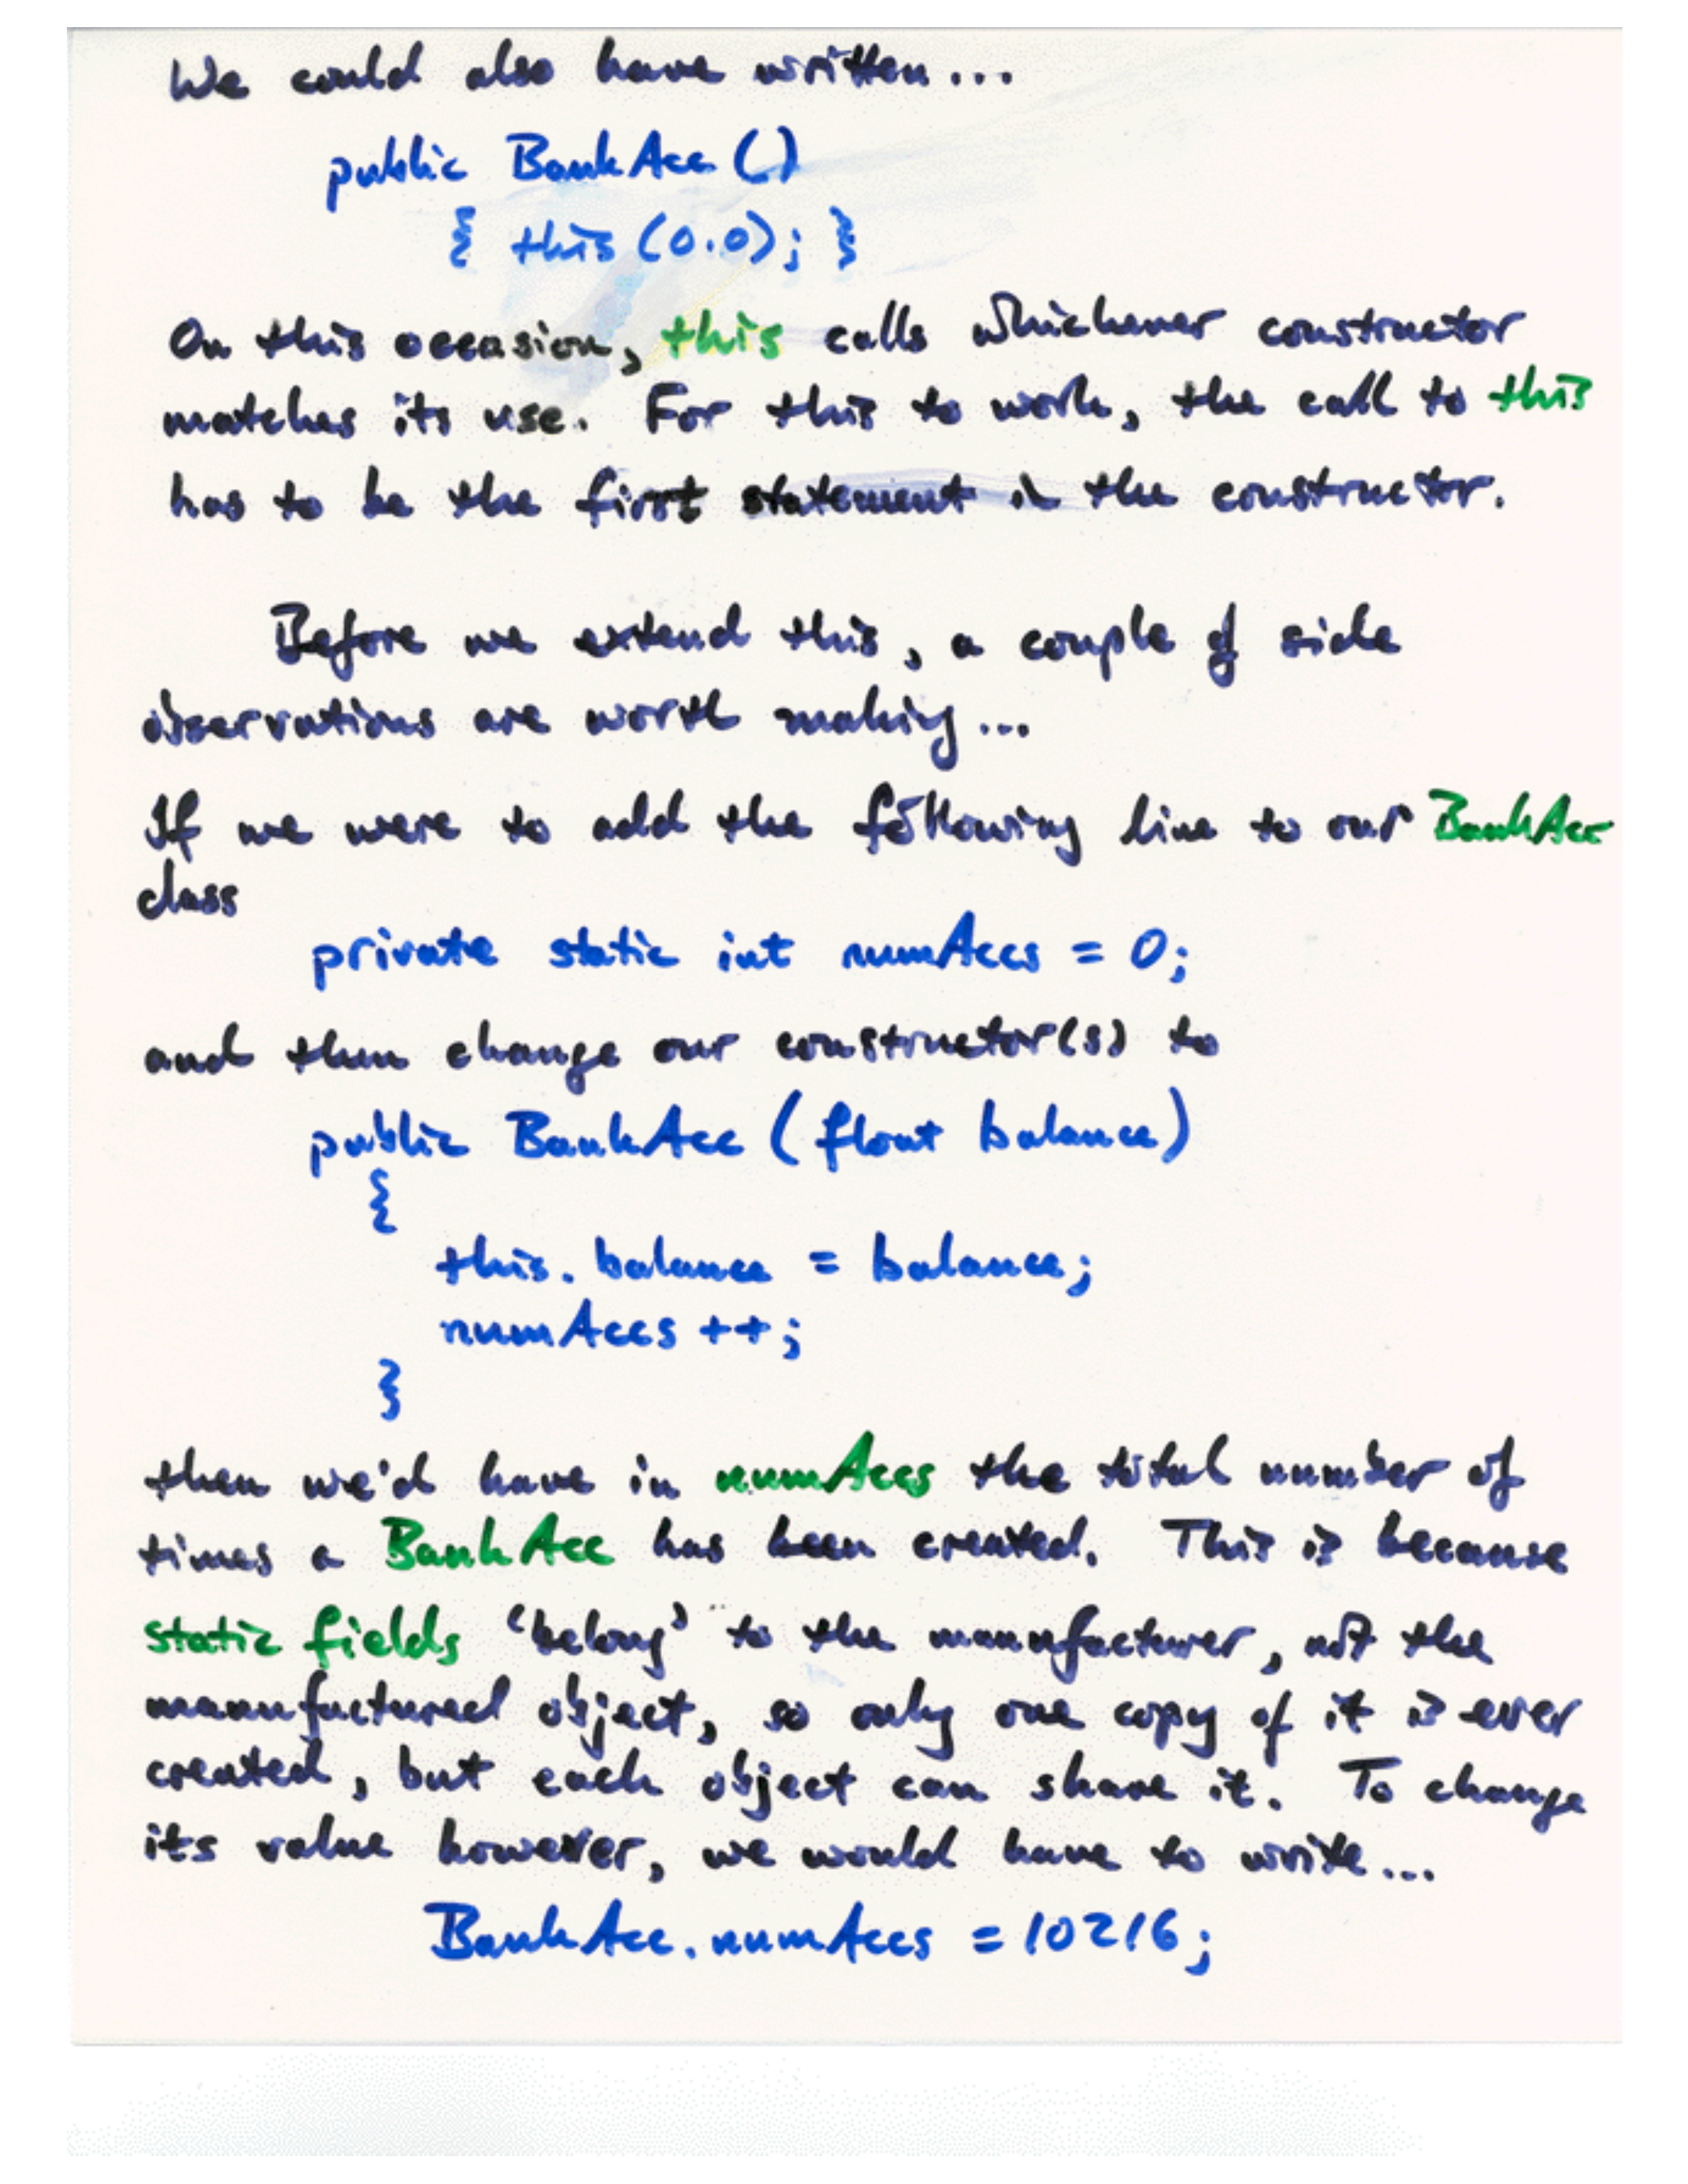 We could also have written...
public BankAcc ()
{ this (0.0); }
On this occasion, this calls whichever constructor
matches its use. For this to work, the call to this
has to be the first statement in the constructor.
Before we extend this, a couple of side
observations are worth making...
If we were to add the following line to our BankAcc
class
private static int numAccs = 0;
and then change our constructor(s) to
public BankAcc (float balance)
{
this. balance = balance;
numAccs ++;
}
then we'd have in numAccs the total number of
times a BankAcc has been created. This is because
static fields 'belong' to the manufacturer, not the
manufactured object, so only one copy of it is ever
created, but each object can share it. To change
its value however, we would have to write...
BankAcc.numAccs = 10216;